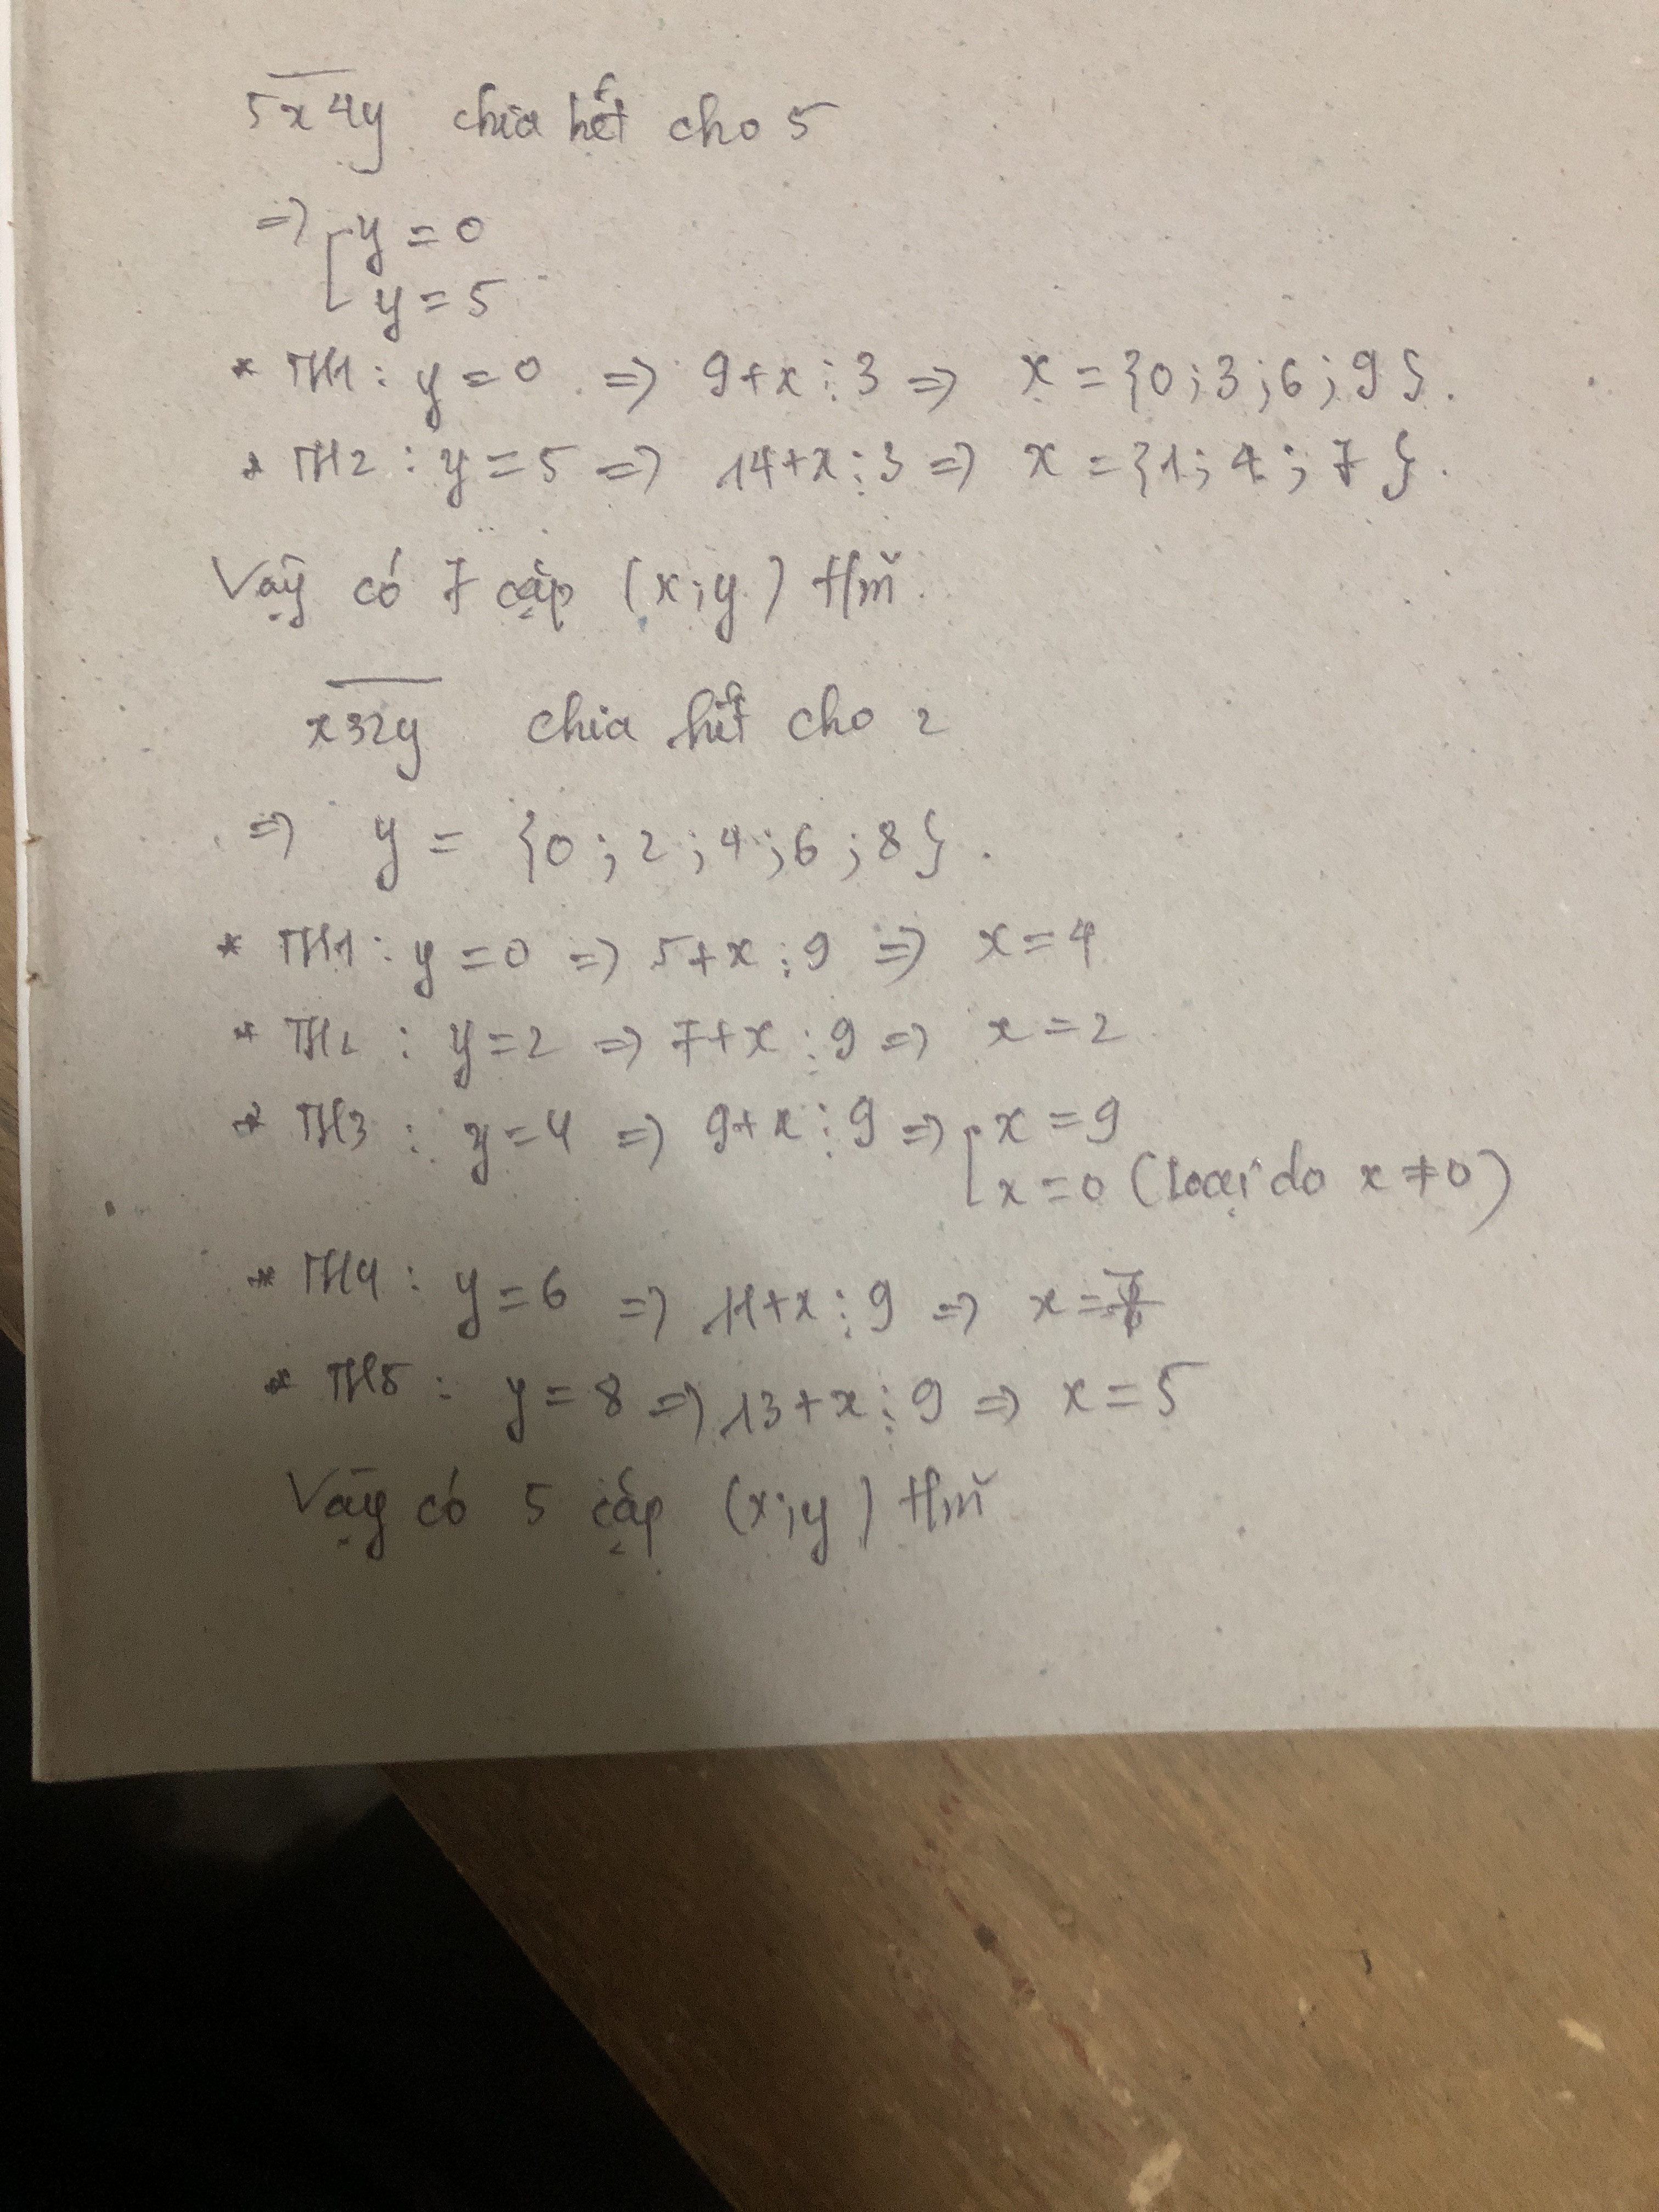 5x4y chia hết cho 5
=> [ y = 0
y = 5
* TH1 : y = 0 => 9+x ⋮ 3 => x = {0 ; 3 ; 6 ; 9}.
* TH2 : y = 5 => 14+x ⋮ 3 => x = {1 ; 4 ; 7}.
Vậy có 7 cặp (x;y) t/m
x32y chia hết cho 2
=> y = {0 ; 2 ; 4 ; 6 ; 8}.
* TH1 : y = 0 => 5+x ⋮ 9 => x = 4
* TH2 : y = 2 => 7+x ⋮ 9 => x = 2
* TH3 : y = 4 => 9+x ⋮ 9 => [ x = 9
x = 0 (loại do x ≠ 0)
* TH4 : y = 6 => 11+x ⋮ 9 => x = 7
* TH5 : y = 8 => 13+x ⋮ 9 => x = 5
Vậy có 5 cặp (x;y) t/m